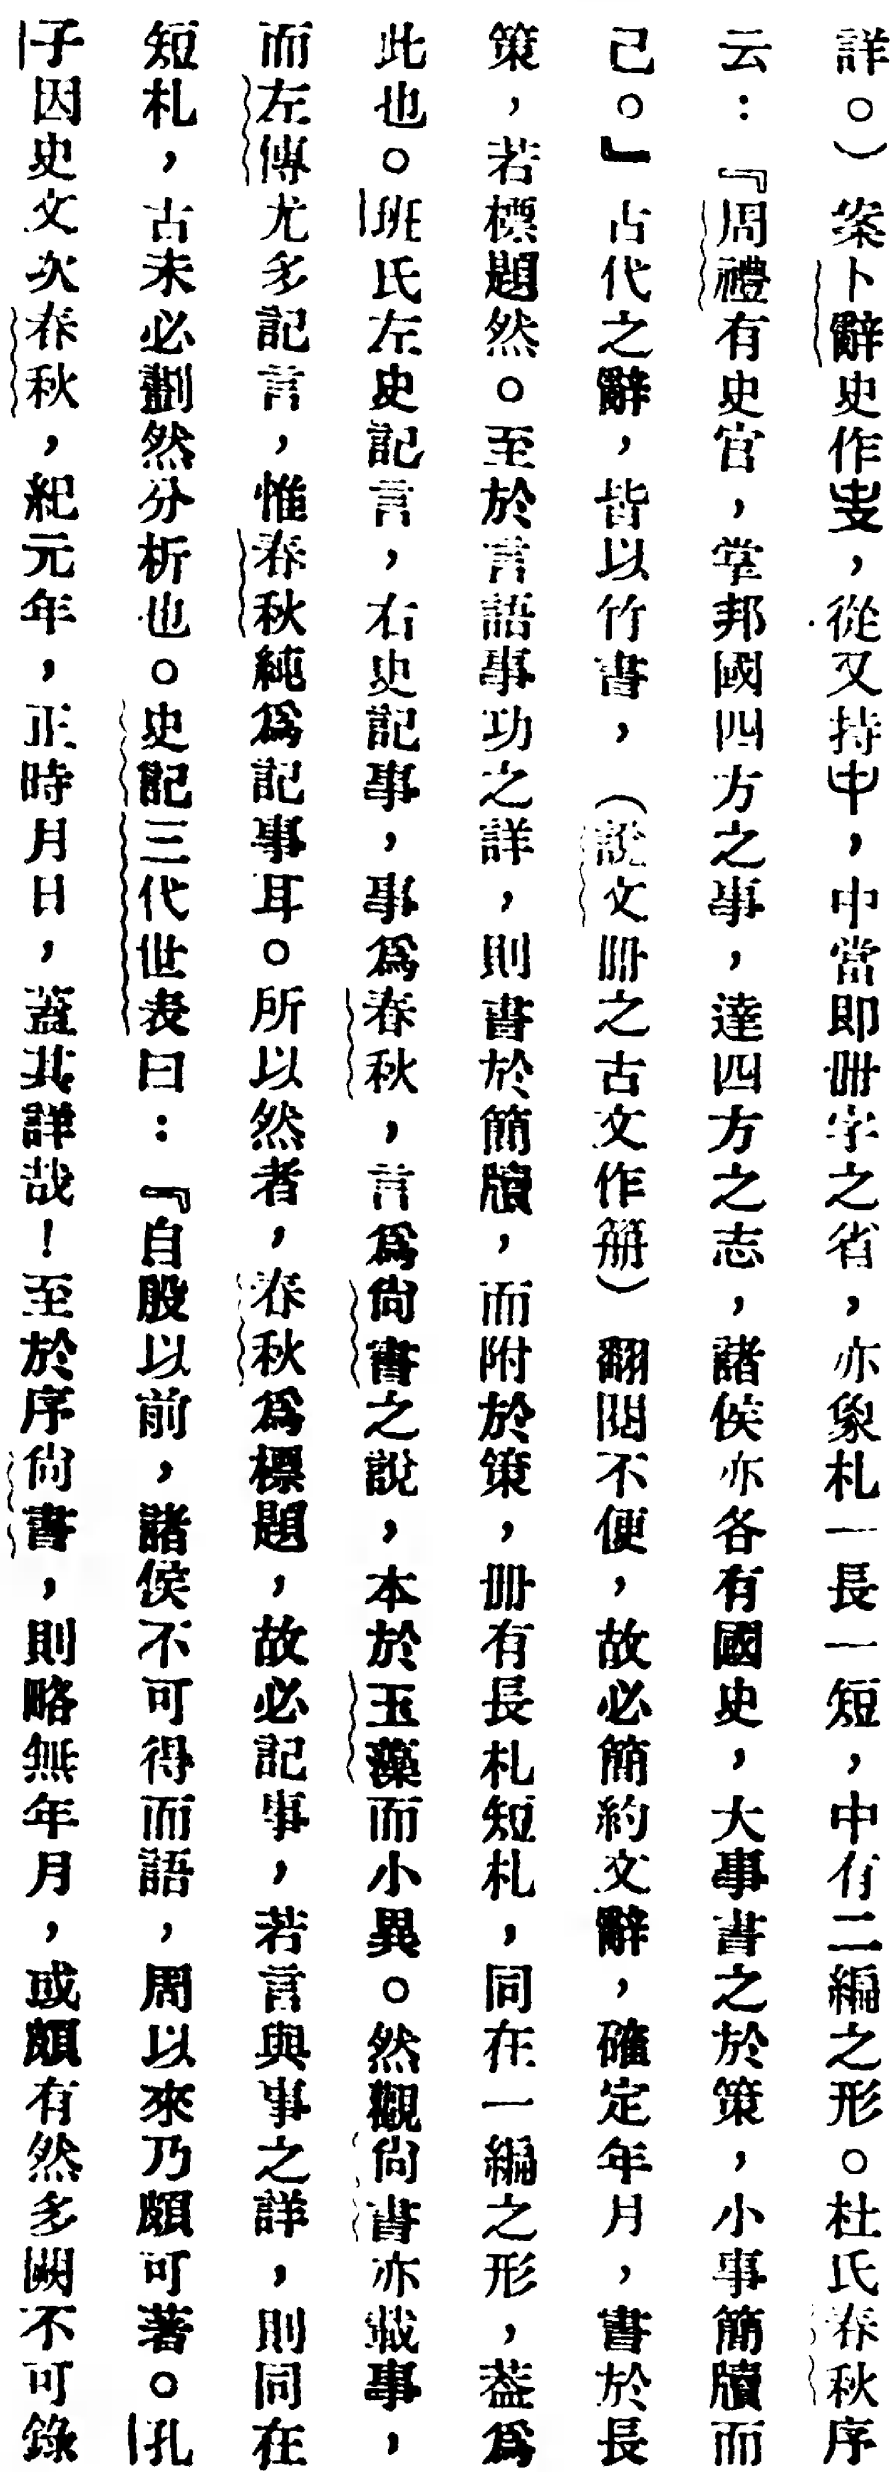 詳。）案卜辭史作𠭁，從又持中，中當即冊字之省，亦象札一長一短，中有二編之形。杜氏春秋序
云：『周禮有史官，掌邦國四方之事，達四方之志，諸侯亦各有國史，大事書之於策，小事簡牘而
己。』古代之辭，皆以竹書，（說文冊之古文作笧）翻閱不便，故必簡約文辭，確定年月，書於長
策，若標題然。至於言語事功之詳，則書於簡牘，而附於策，冊有長札短札，同在一編之形，葢爲
此也。班氏左史記言，右史記事，事爲春秋，言爲尙書之說，本於玉藻而小異。然觀尙書亦載事，
而左傳尤多記言，惟春秋純爲記事耳。所以然者，春秋爲標題，故必記事，若言與事之詳，則同在
短札，古未必劃然分析也。史記三代世表曰：『自殷以前，諸侯不可得而語，周以來乃頗可著。孔
子因史文次春秋，紀元年，正時月日，蓋其詳哉！至於序尙書，則略無年月，或頗有然多闕不可錄